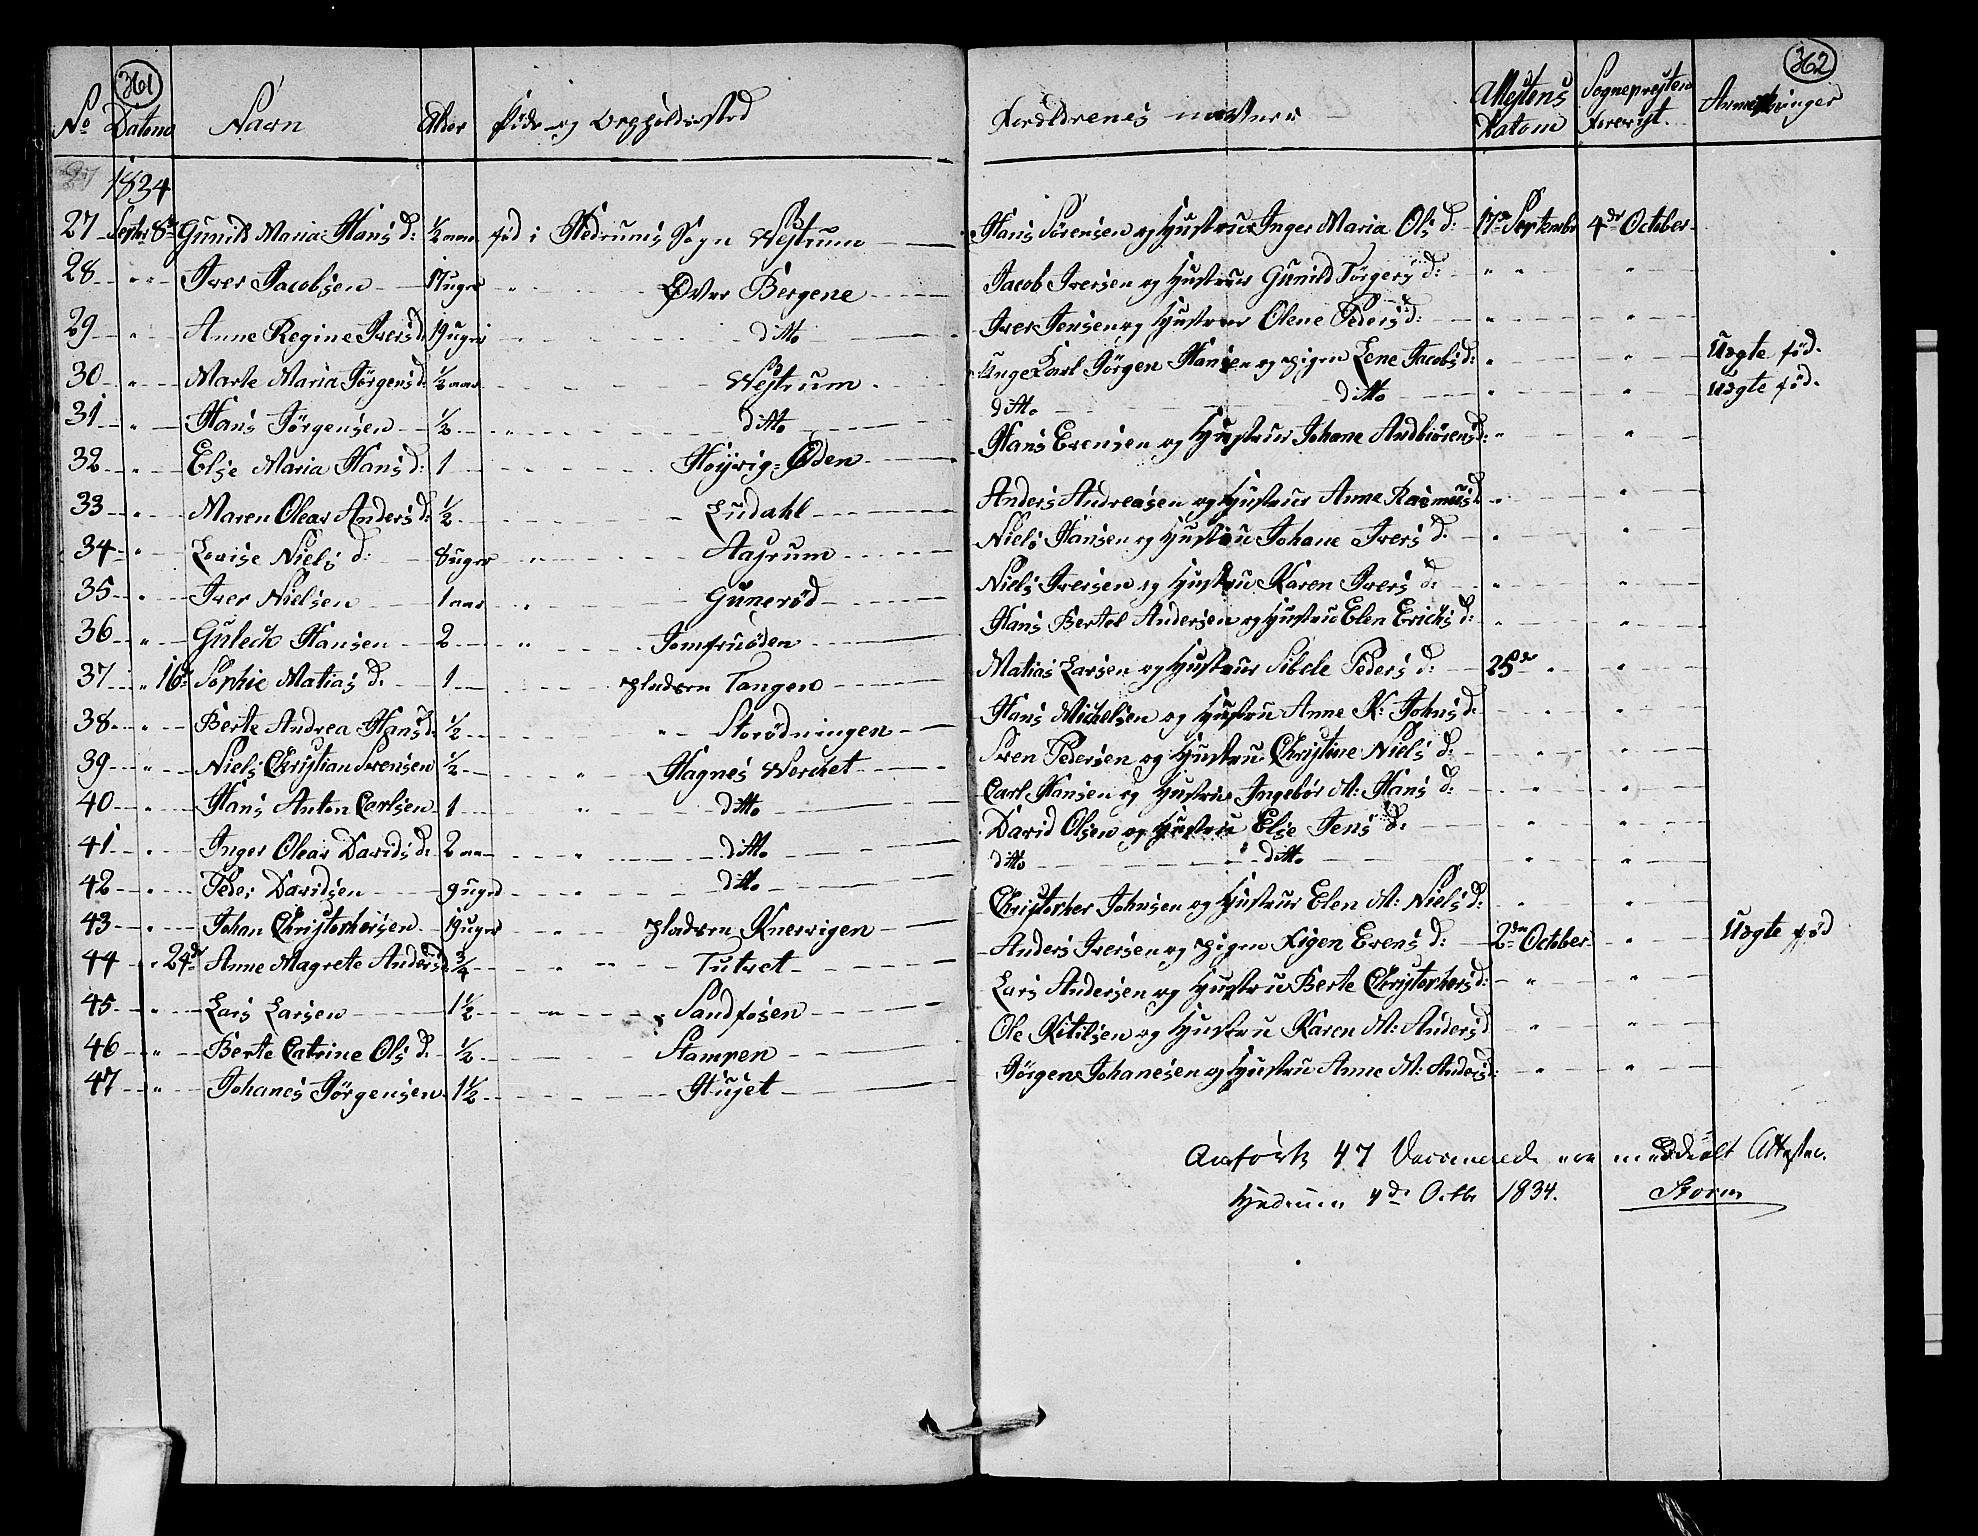 361
362
No Datono Navn Alder Føde og Opholdssted Forældrenes navne Attestens Datom Sogneprestens Anmerkninger
1834
27 Septbr 8de Gunild Maria Hans d: ½ aar fød i Hedrums Sogn Westrum Hans Sørensen og Hustrue Inger Maria Ols d: 17de September 4de October
28 " " Iver Jacobsen 17 uger " Øvre Bergene Jacob Iversen og Hustrue Gunild Törgers d: " " "
29 " Anne Regine Ivers d: 19 uger " ditto Iver Jensen og Hustrue Olene Peders d: " "
30 " Marte Maria Jörgens d: ½ aar Westrum Unge Karl Jörgen Hansen og pigen Lene Jacobs d: " " Uægte fød.
31 " Hans Jörgensen ½ " ditto ditto ditto " " Uægte fød.
32 " Else Maria Hans d: 1 Höyrig=Øden Hans Evensen og Hustrue Johane Andbiörens d: " "
33 " Maren Olear Anders d: ½ Ludahl Anders Andreasen og Hustrue Anne Rasmus d " "
34 " Lovise Niels d: 8 uger " Aasrum Niels Hansen og Hustru Johane Ivers d: " "
35 " Iver Nielsen 1 aar " Gunerød Niels Iversen og Hustru Karen Ivers d: " "
36 " Guleck Hansen 2 " Jomfruöden Hans Bertel Andersen og Hustru Elen Erichs d: " "
37 " 16de Sophie Matias d. 1 pladsen Tangen Matias Larsen og Hustrue Sibele Peders d: 25de " "
38 " Berte Andrea Hans d. ½ " Storödningen Hans Michelsen og Hustru Anne K: Johns d: " "
39 " Niels Christian Svensen ½ " Hagnes Werchet Sven Pedersen og Hustru Christine Niels d: " "
40 " Hans Anton Carlsen 1 " ditto Carl Hansen og Hustrue Ingebör M: Hans d: " "
41 " Inger Olear Davids d: 2 aar " ditto David Olsen og Hustru Else Jens d: " "
42 " Peder Davidsen 9 uger " ditto ditto " ditto " "
43 " Johan Christophersen 19 uger " pladsen Knerrigen Christopher Johnsen og Hustrue Elen M: Niels d: " "
44 " 24de Anne Magrete Anders d ¾ " " Tutvet Anders Iversen og pigen Evens d: 2den October " Uægte fød
45 " Lars Larsen 1½ " Sandfosen Lars Andersen og Hustru Berte Christophers d: " "
46 " Berte Catrine Ols d. ½ Stampen Ole Kitilsen og Hustru Karen M: Anders d " "
47 " Johanes Jörgensen 1½ Huset Jörgen Johanesen og Hustru Anne M: Anders d: " "
Anförte 47 Vaccinerede ere meddeelt Attester.
Hedrum 4de Octbr 1834. Storm